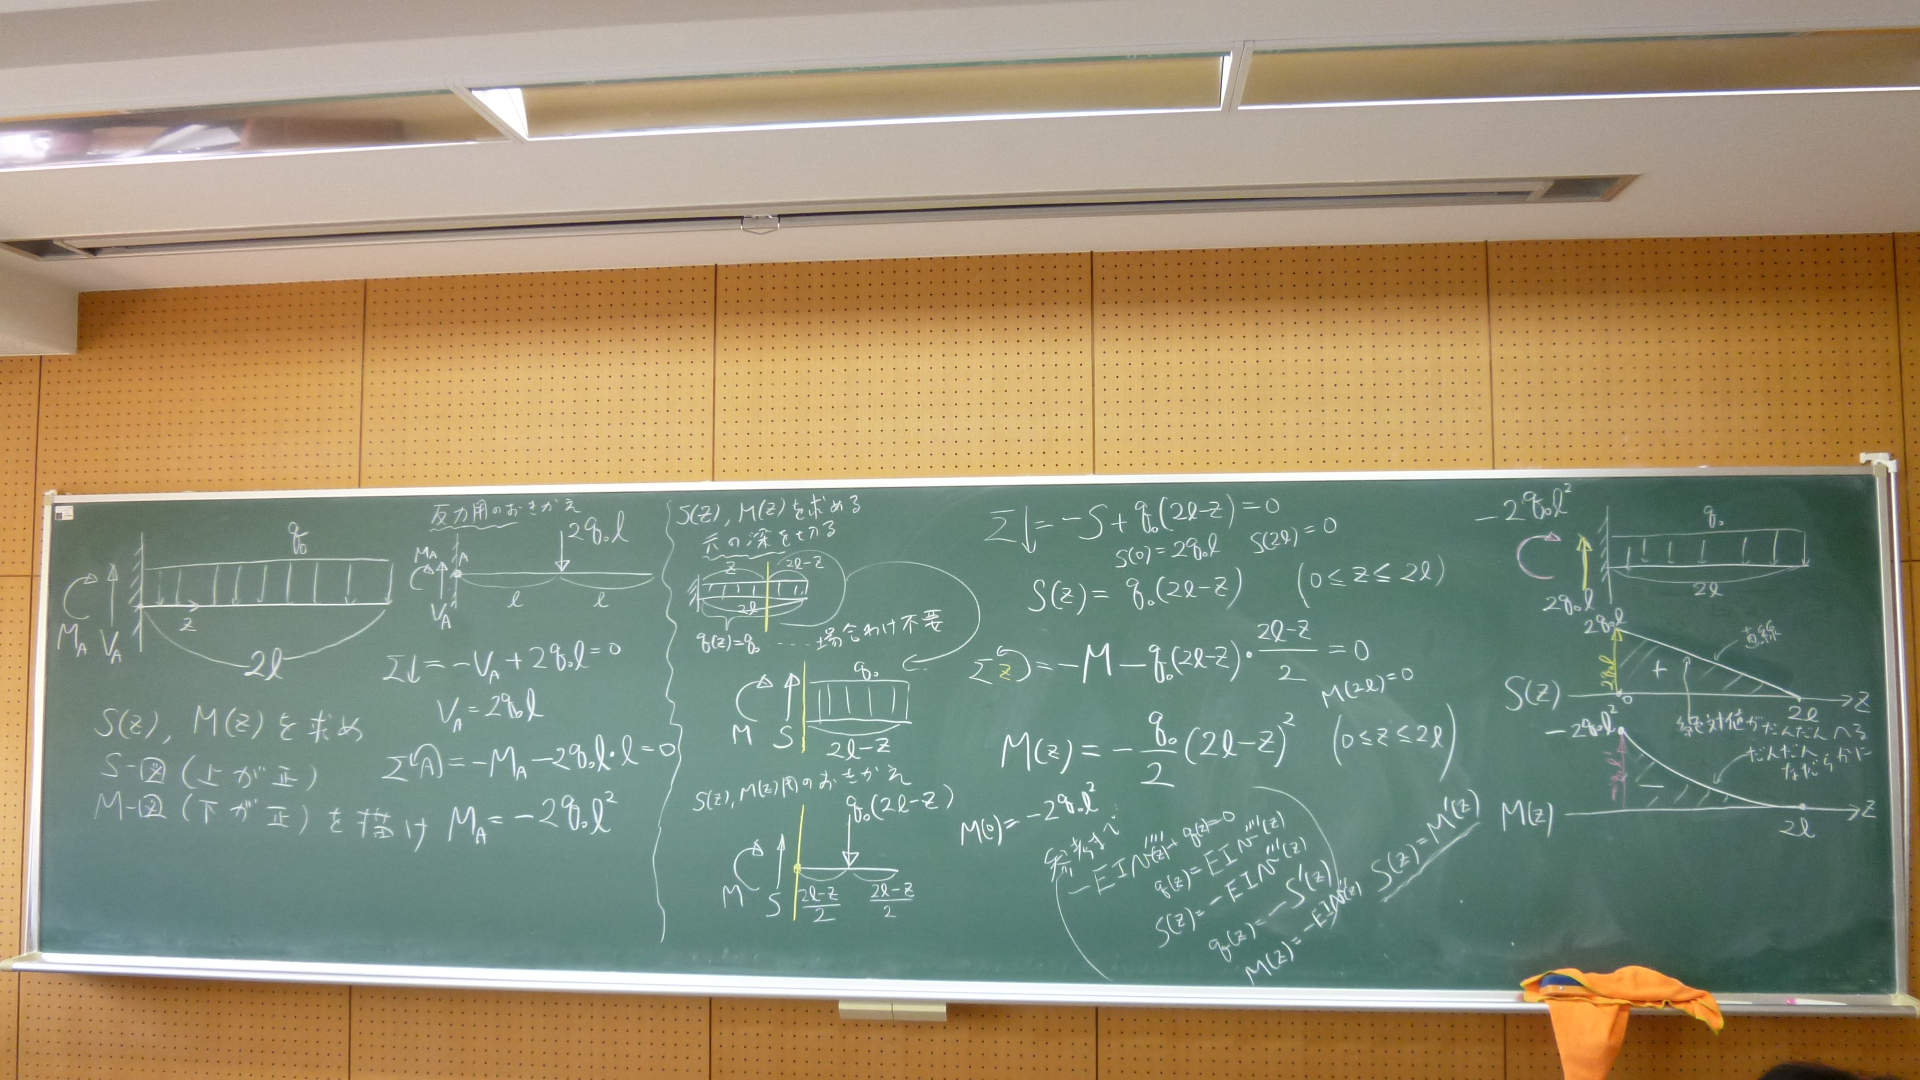 q₀
M_A V_A
z
2l
S(z), M(z)を求め
S-図(上が正)
M-図(下が正)を描け
反力用のおきかえ
2q₀l
M_A A
V_A
l l
Σ↓=-V_A+2q₀l=0
V_A=2q₀l
Σ(A)=-M_A-2q₀l・l=0
M_A=-2q₀l²
S(z), M(z)を求める
元の梁を切る
z 2l-z
2l
q(z)=q₀ ‥‥場合わけ不要
q₀
M S 2l-z
S(z), M(z)用のおきかえ
q₀(2l-z)
M S (2l-z)/2 (2l-z)/2
Σ↓=-S+q₀(2l-z)=0
S(0)=2q₀l S(2l)=0
S(z)=q₀(2l-z) (0≤z≤2l)
Σz=-M-q₀(2l-z)・(2l-z)/2=0
M(2l)=0
M(z)=-q₀/2(2l-z)² (0≤z≤2l)
M(0)=-2q₀l²
参考まで
-EIv''''(z)+q(z)=0
q(z)=EIv''''(z)
S(z)=-EIv'''(z)
q(z)=-S'(z)
M(z)=-EIv''(z)
S(z)=M'(z)
-2q₀l²
q₀
2l
2q₀l
2q₀l
直線
2q₀l +
S(z) 0 2l z
絶対値がだんだんへる
-2q₀l²
だんだん
なだらかに
-2q₀l² -
M(z) 2l z